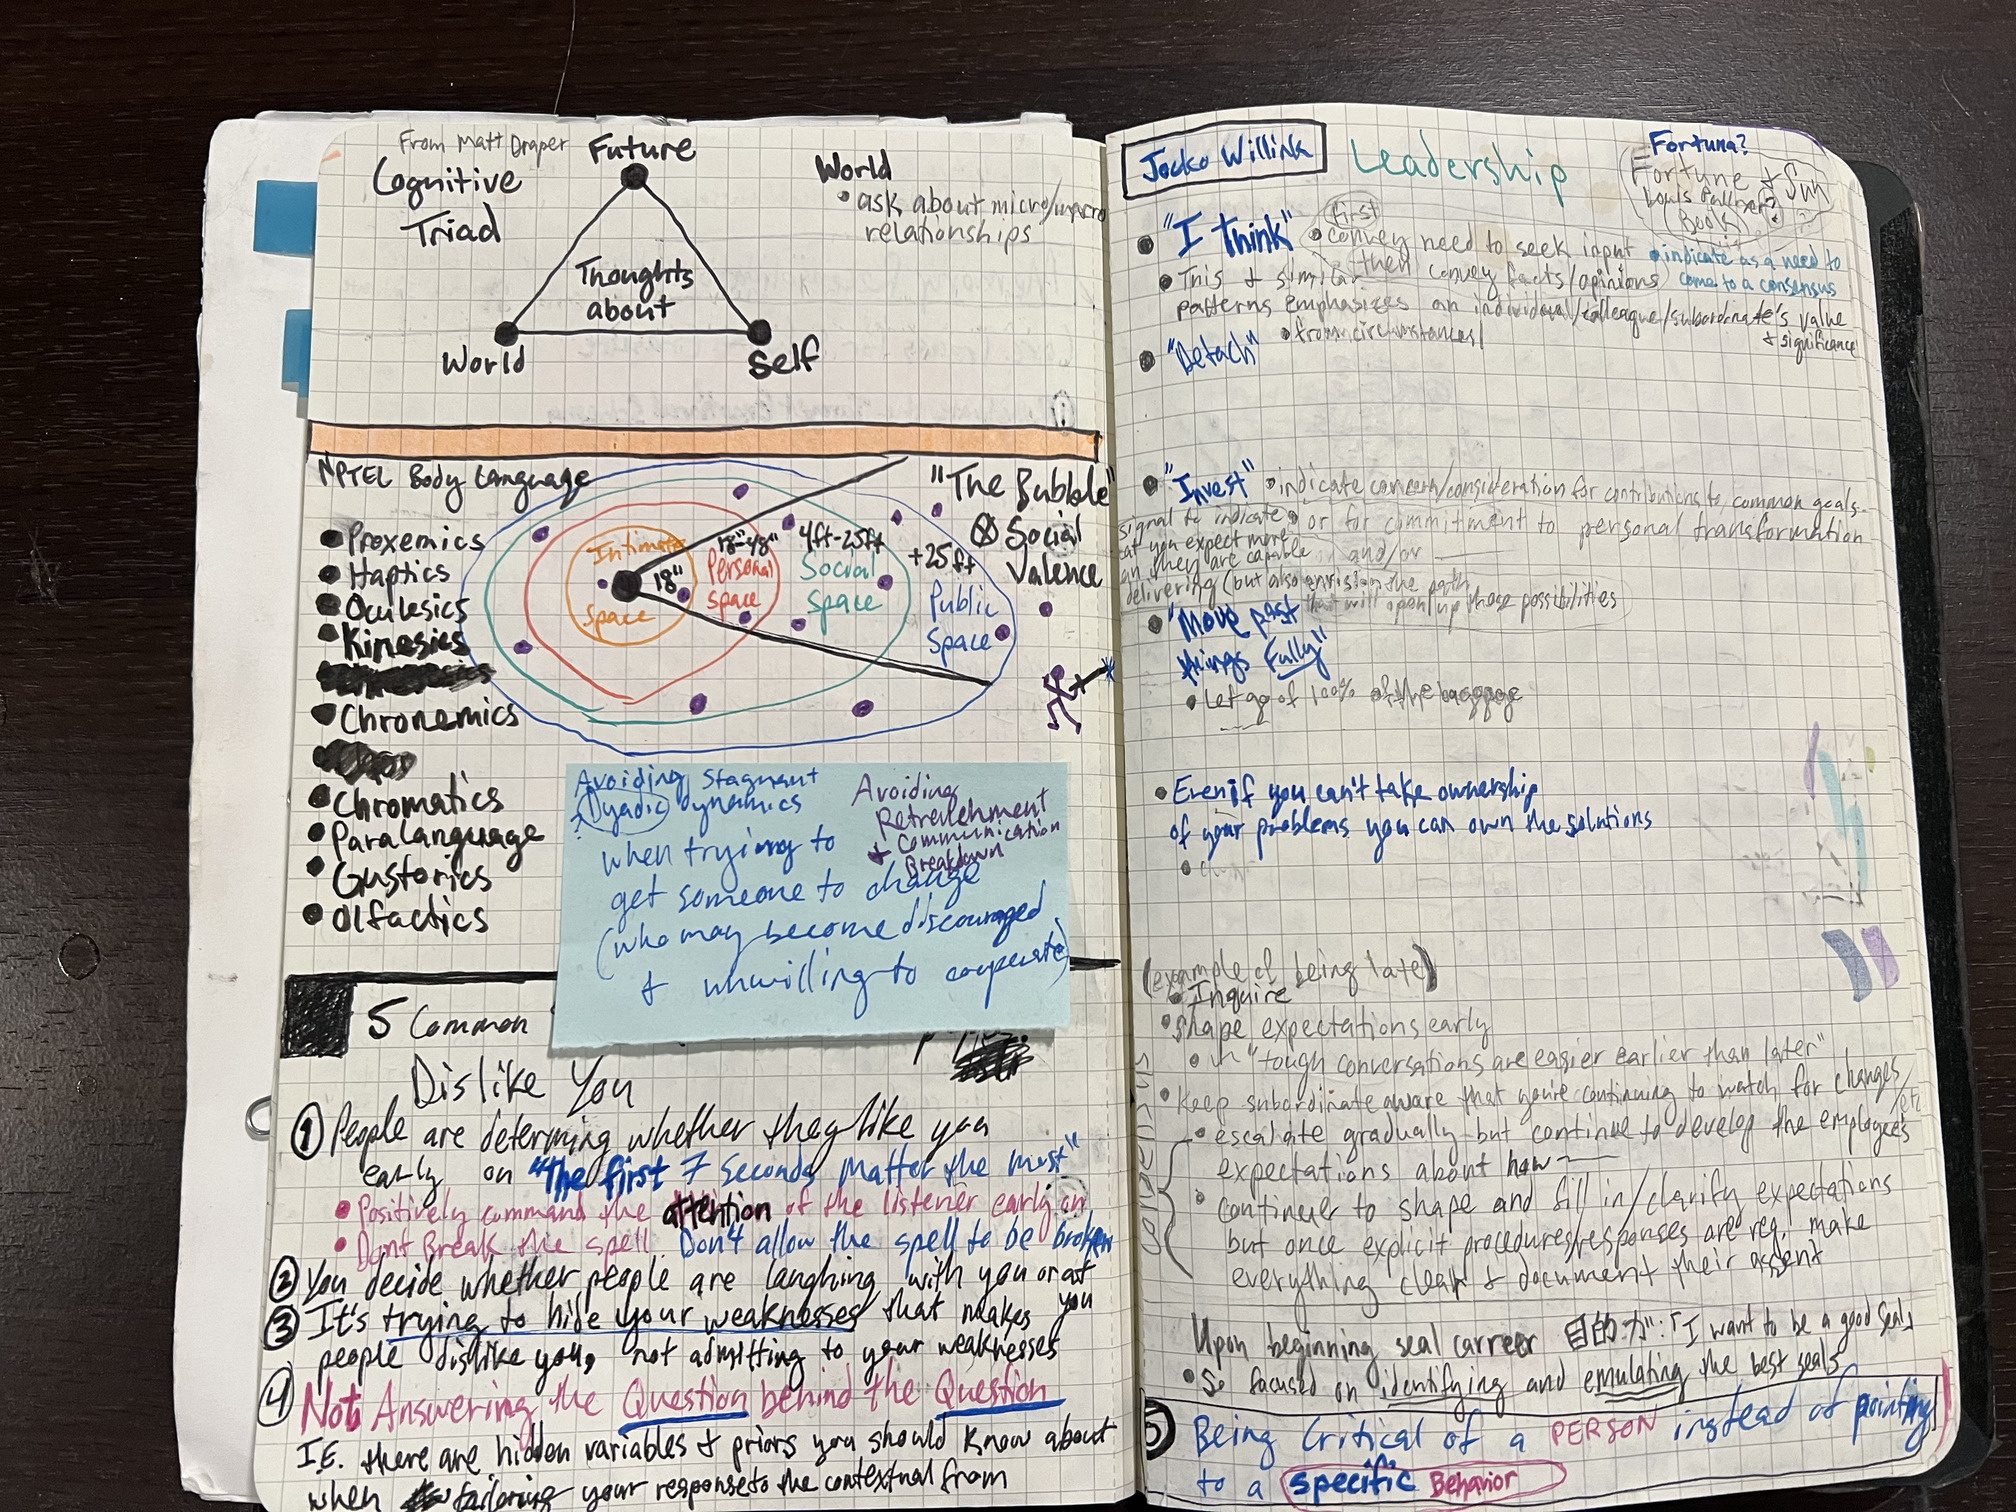 From Matt Draper
Cognitive
Triad
Future
Thoughts
about
World
Self
World
• ask about micro/macro
relationships
NPTEL Body Language
• Proxemics
• Haptics
• Oculesics
• Kinesics
• Chronemics
• Chromatics
• Paralanguage
• Gustorics
• Olfactics
"The Bubble"
Social
Valence
Intimate
space
18"
18"-48"
Personal
space
4ft-25ft
Social
space
+25ft
Public
Space
Avoiding Stagnant
Dyadic dynamics
when trying to
get someone to change
(who may become discouraged
& unwilling to cooperate)
Avoiding
Retrenchment
+ Communication
Breakdown
5 Common
Dislike You
① People are determing whether they like you
early on "the first 7 Seconds Matter the most"
• Positively command the attention of the listener early on
• Dont Break the spell. Don't allow the spell to be broken
② You decide whether people are laughing with you or at
you
③ It's trying to hide your weaknesses that makes
people dislike you, not admitting to your weaknesses
④ Not Answering the Question behind the Question
I.E. there are hidden variables & priors you should know about
when tailoring your response to the contextual from
Jocko Willink
Leadership
Fortuna?
Fortune + Sun
Book
• "I Think"
first
• convey need to seek input
• indicate as a need to
come to a consensus
then convey facts/opinions
• This & similar
patterns emphasizes an individual/colleague/subordinate's value
& significance
• "Detach"
• from circumstances/
• "Invest" • indicate concern/consideration for contributions to common goals.
• or for commitment to personal transformation
and/or
signal to indicate
at you expect more
an they are capable
delivering (but also envision the path
that will open up those possibilities
• "Move past
things Fully"
• Let go of 100% of the baggage
• Even if you can't take ownership
of your problems you can own the solutions
(example of being late)
• Inquire
• Shape expectations early
• "tough conversations are easier earlier than later"
• Keep subordinate aware that you're continuing to watch for changes/
etc
• escalate gradually but continue to develop the employees
expectations about how
• continue to shape and fill in/clarify expectations
but once explicit procedures/responses are req. make
everything clear & document their assent
Upon beginning seal carreer 目的力":「I want to be a good seal」
• So focused on identifying and emulating the best seals
⑤ Being Critical of a PERSON instead of pointing
to a specific Behavior